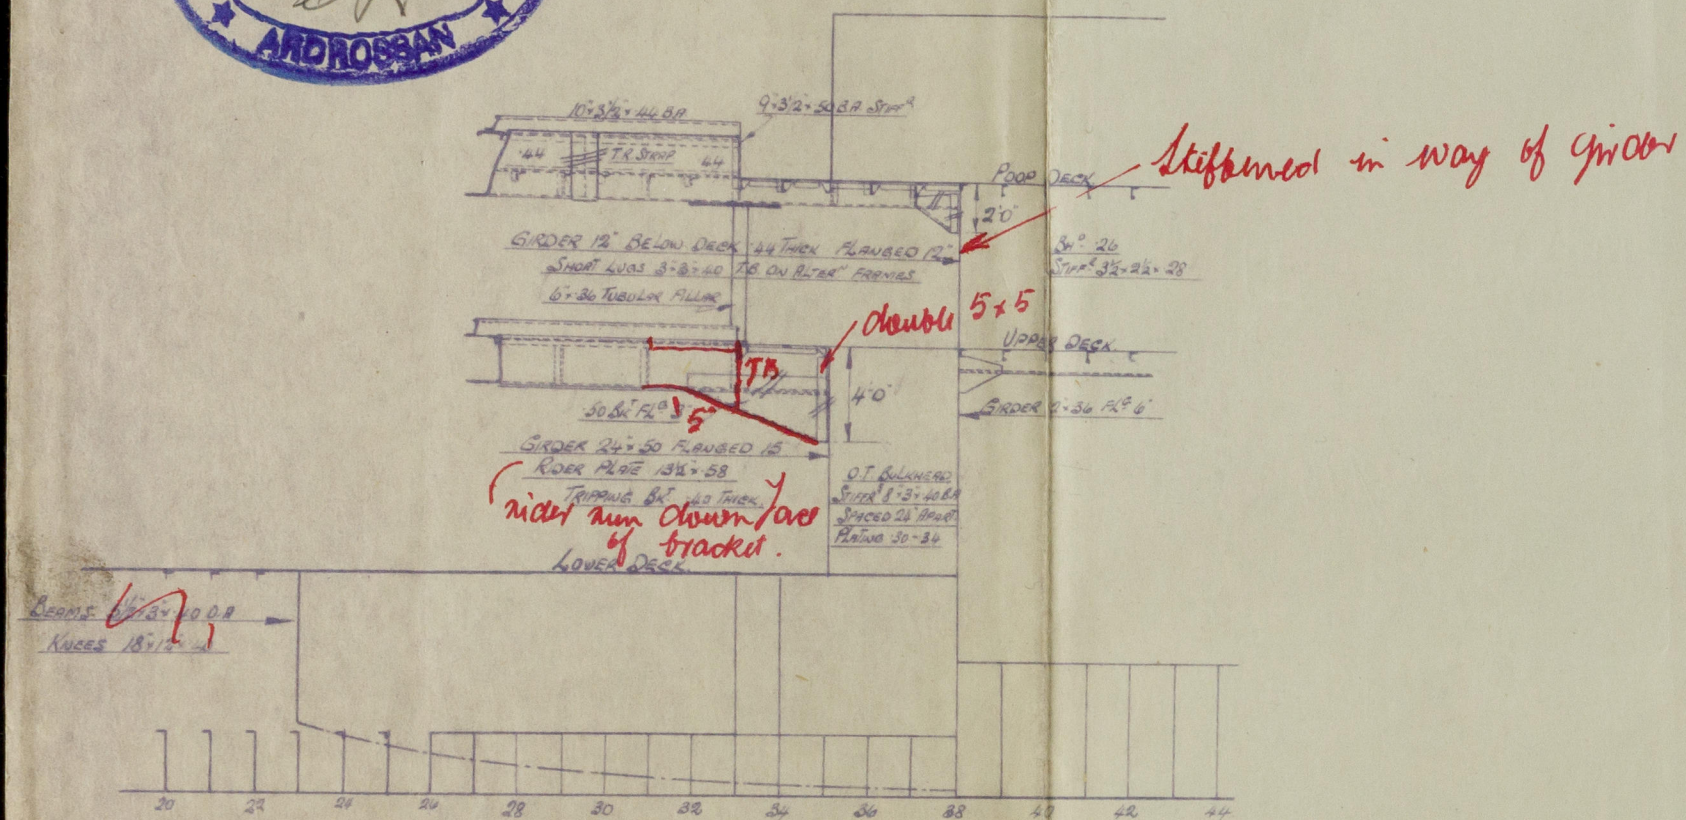 ARDROSSAN
10"×3½"×.44 BA
9"×3½"×.50 BA STIFFR
.44
T.R. STRAP
.44
POOP DECK
Stiffened in way of girder
2'0"
GIRDER 12" BELOW DECK .44 THICK FLANGED 12"
SHORT LUGS 3"×3"×.40 T.B. ON ALTERN FRAMES
BHD .26
STIFFR 3½×2½×.28
6"×.36 TUBULAR PILLAR
double 5 x 5
UPPER DECK
TB
4'0"
.50 BKT FLG
5"
GIRDER 24"×.50 FLANGED 15"
GIRDER 12"×.36 FLG 6"
RIDER PLATE 13½"×.58
TRIPPING BKT .40 THICK
rider run down face
of bracket.
O.T. BULKHEAD
STIFFRS 8"×3"×.40 BA
SPACED 24" APART
PLATING .30-.34
LOWER DECK
BEAMS 5½"×3"×.40 O.A
KNEES 18"×12"
20 22 24 26 28 30 32 34 36 38 40 42 44